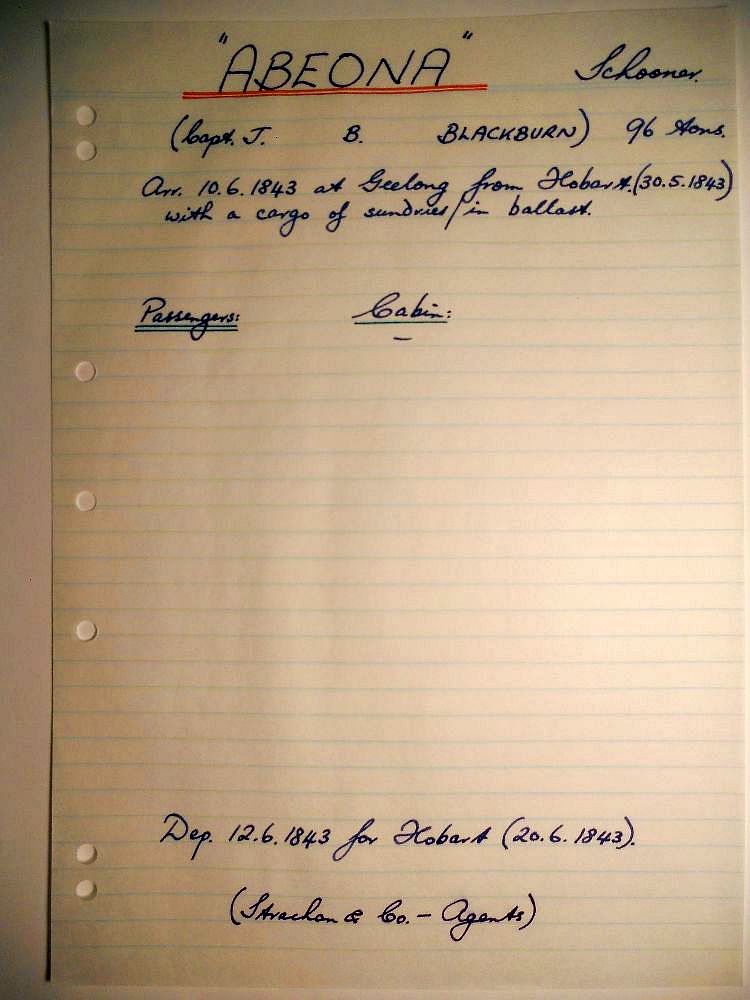 "ABEONA" Schooner.
(Capt. J. B. BLACKBURN) 96 Tons.
Arr. 10.6.1843 at Geelong from Hobart.(30.5.1843)
with a cargo of sundries/in ballast.
Passengers: Cabin:
–
Dep. 12.6.1843 for Hobart (20.6.1843).
(Strachan & Co. – Agents)